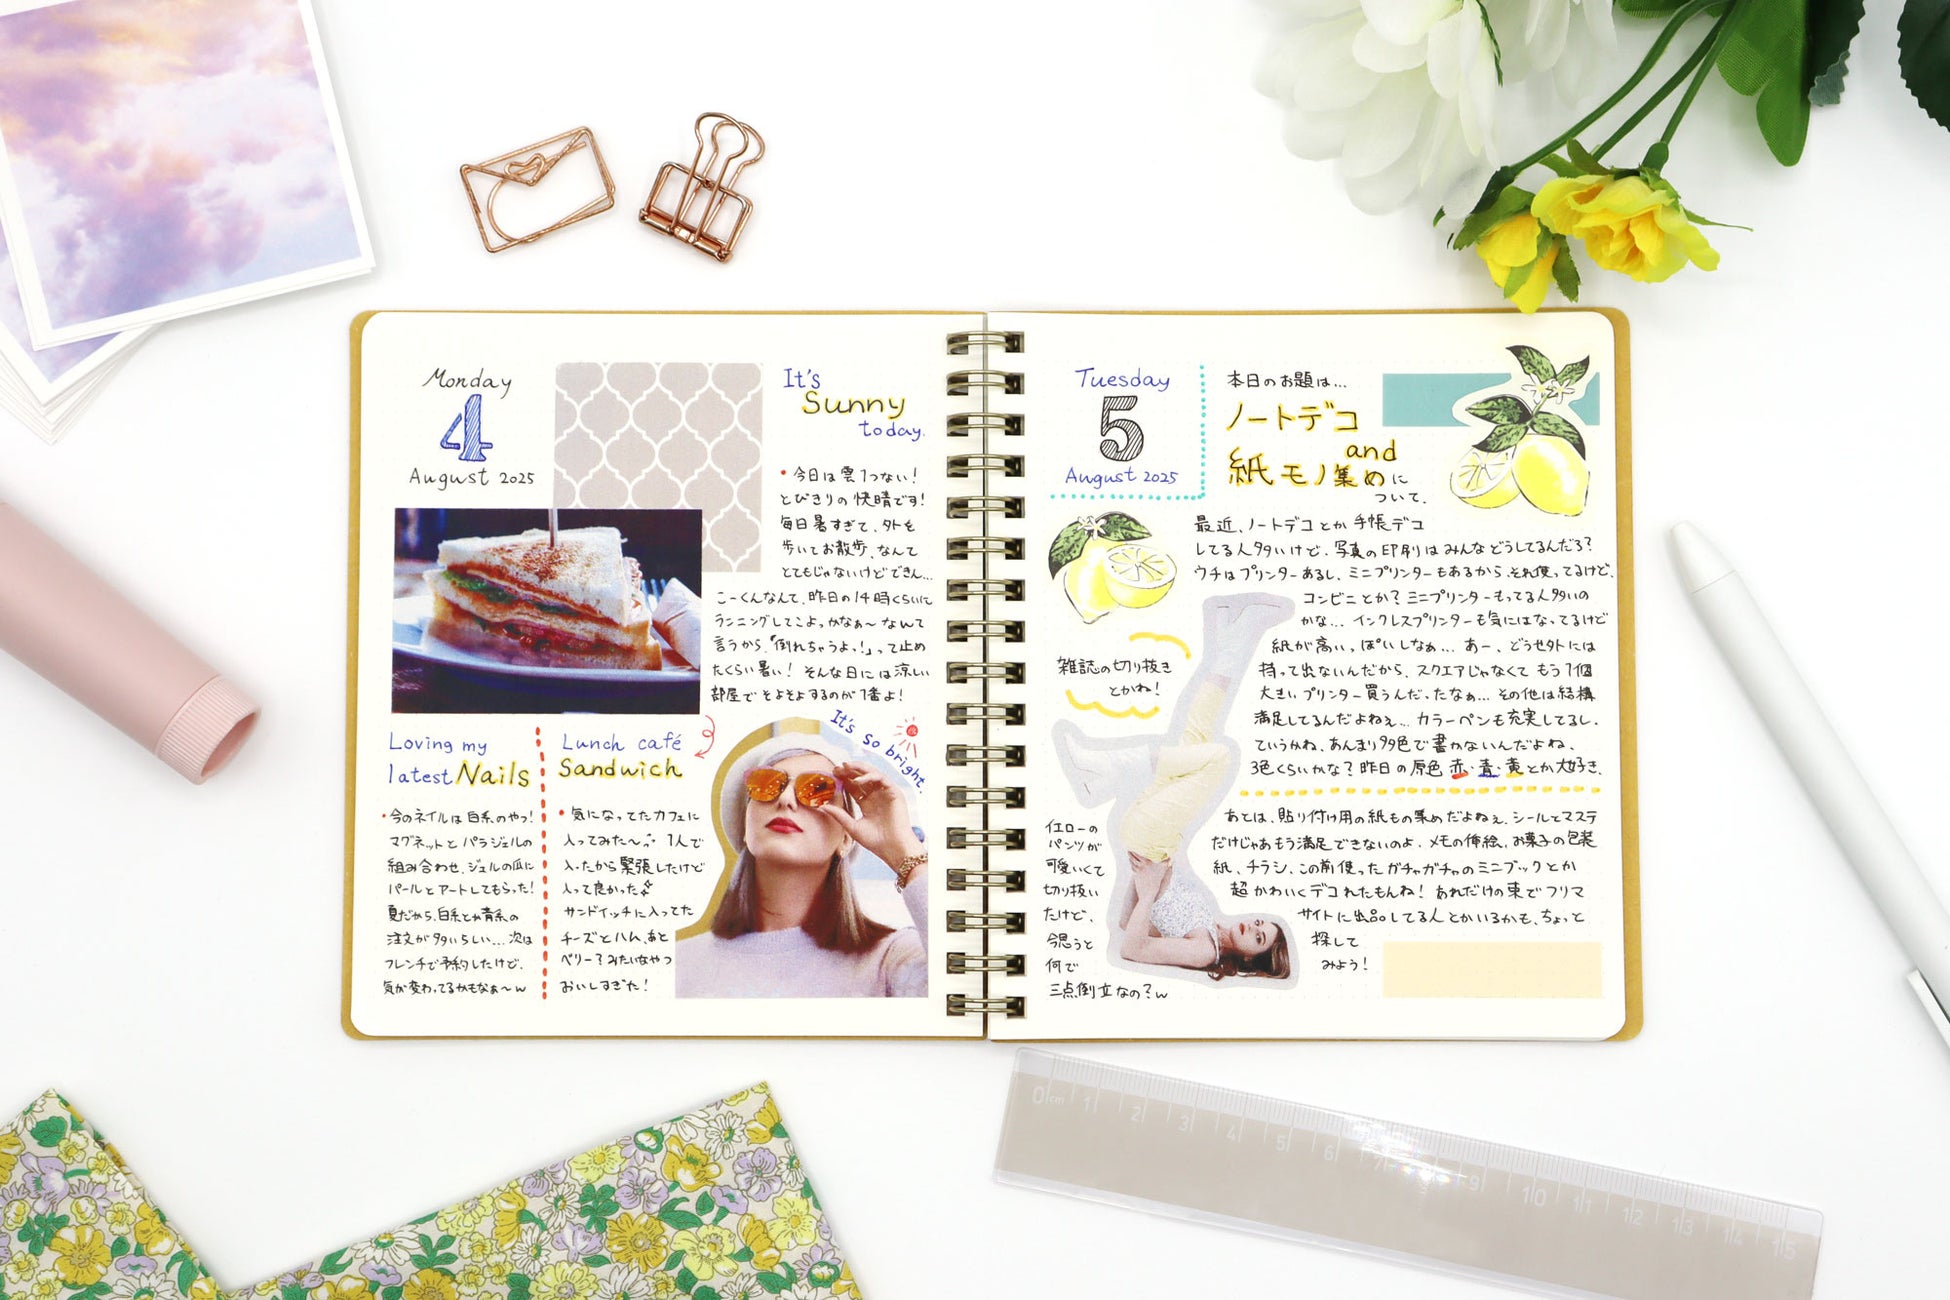 Monday
4
August 2025
It's
Sunny
today.
・今日は雲1つない!
とびきりの快晴です!
毎日暑すぎて、外を
歩いてお散歩、なんて
とてもじゃないけどできん...
こーくんなんて、昨日の14時くらいに
ランニングしてこよっかなぁ〜なんて
言うから、「倒れちゃうよっ!」って止め
たくらい暑い! そんな日には涼しい
部屋でそよそよするのが1番よ!
Loving my
latest Nails
・今のネイルは白系のやつ!
マグネットとパラジェルの
組み合わせ、ジェルの爪に
パールとアートしてもらった!
夏だから、白系とか青系の
注文が多いらしい...次は
フレンチで予約したけど、
気が変わってるかもなぁ〜w
Lunch café
Sandwich
・気になってたカフェに
入ってみた〜 1人で
入ったから緊張したけど
入って良かった
サンドイッチに入ってた
チーズとハム、あと
ベリー?みたいなやつ
おいしすぎた!
It's so bright.
Tuesday
5
August 2025
本日のお題は...
ノートデコ
and
紙モノ集めに
ついて.
最近、ノートデコとか手帳デコ
してる人多いけど、写真の印刷はみんなどうしてるんだろ?
ウチはプリンターあるし、ミニプリンターもあるから、それ使ってるけど、
コンビニとか?ミニプリンターもってる人多いの
かな... インクレスプリンターも気にはなってるけど
紙が高いっぽいしなぁ... あー、どうせ外には
持って出ないんだから、スクエアじゃなくて もう1個
大きいプリンター買うんだったなぁ... その他は結構
満足してるんだよねぇ... カラーペンも充実してるし、
ていうかね、あんまり多色で書かないんだよね、
3色くらいかな? 昨日の原色 赤・青・黄とか大好き、
雑誌の切り抜き
とかね!
あとは、貼り付け用の紙もの集めだよねぇ、シールとマステ
だけじゃあもう満足できないのよ、メモの挿絵、お菓子の包装
紙、チラシ、この前使ったガチャガチャのミニブックとか
超かわいくデコれたもんね! あれだけの束でフリマ
サイトに出品してる人とかいるかも、ちょっと
探して
みよう!
イエローの
パンツが
可愛いくて
切り抜い
たけど、
今思うと
何で
三点倒立なの?w
0cm 1 2 3 4 5 6 7 9 10 11 12 13 14 15